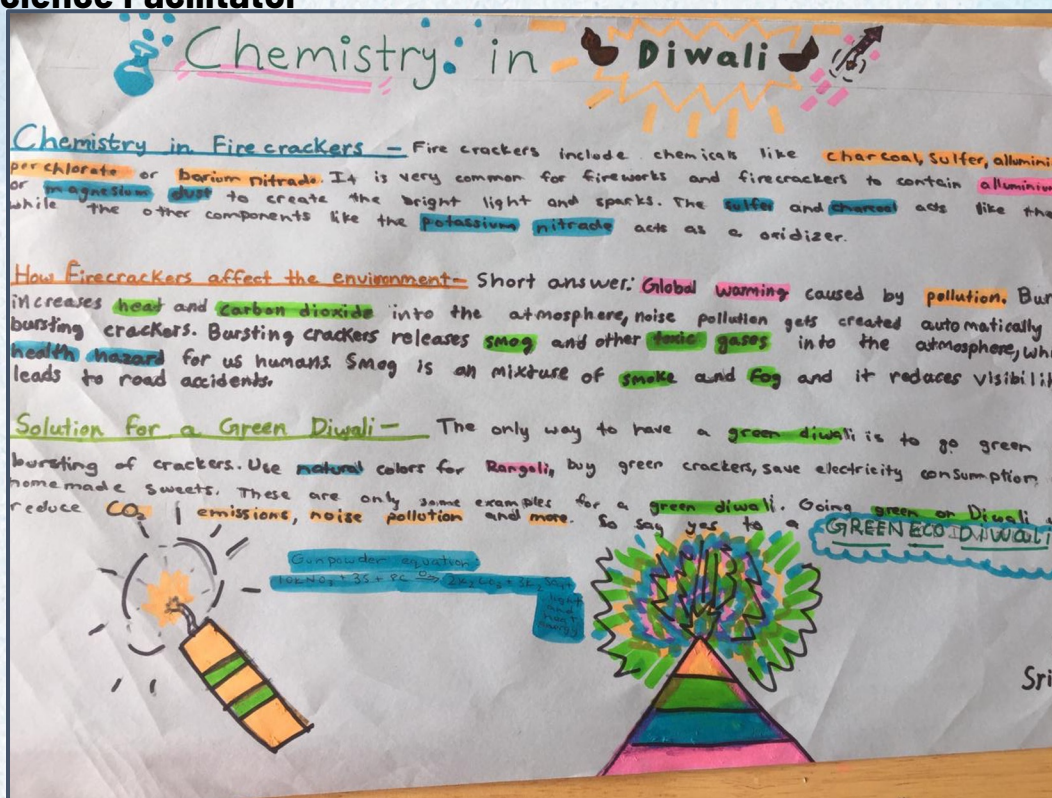 cience Facilitator
Chemistry: in Diwali
Chemistry in Firecrackers - Fire crackers include chemicals like charcoal, sulfer, allumini
perchlorate or barium nitrade. It is very common for fireworks and firecrackers to contain alluminium
or magnesium dust to create the bright light and sparks. The sulfer and charcoal acts like the
while the other components like the potassium nitrade acts as a oxidizer.
How Firecrackers affect the environment- Short answer: Global warming caused by pollution. Bur
increases heat and carbon dioxide into the atmosphere, noise pollution gets created automatically
bursting crackers. Bursting crackers releases smog and other toxic gases into the atmosphere, whi
health hazard for us humans. Smog is an mixture of smoke and fog and it reduces visibili
leads to road accidents.
Solution for a Green Diwali- The only way to have a green diwali is to go green
bursting of crackers. Use natural colors for Rangoli, buy green crackers, save electricity consumption
homemade sweets. These are only some examples for a green diwali. Going green on Diwali i
reduce CO2 emissions, noise pollution and more. So say yes to a GREEN ECO DIWALI
Gunpowder equation
10KNO3 + 3S + 8C 2K2CO3 + 3K2SO4 +
light
and
heat
energy
Sri